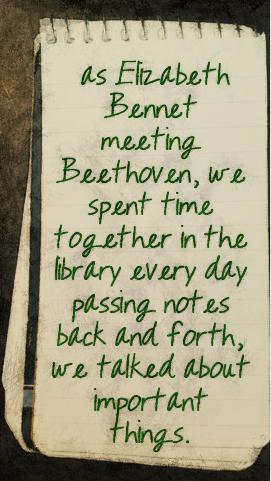 as Elizabeth
Bennet
meeting
Beethoven, we
spent time
together in the
library every day
passing notes
back and forth,
we talked about
important
things.